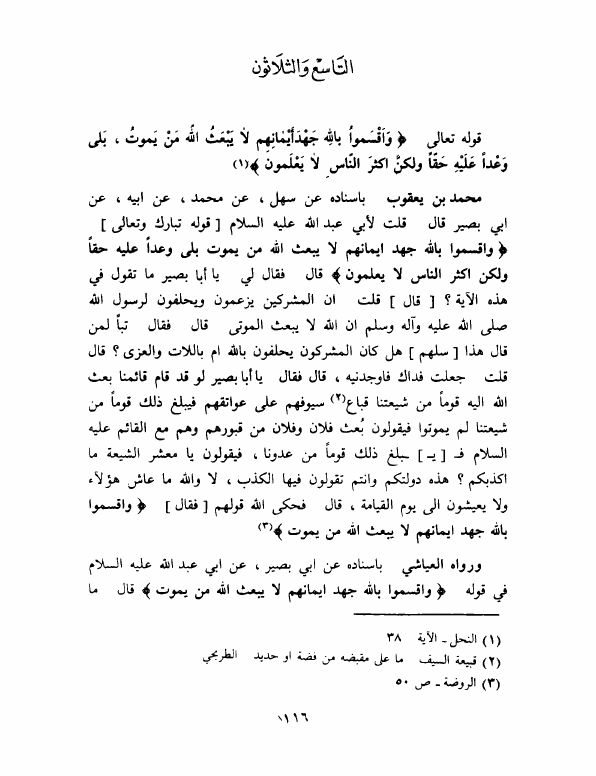 التَّاسِع وَالثَّلَاثون
قوله تعالى ﴿ وَأَقْسَمواُ بالله جَهْدَأَيْمَانِهِم لاَ يَبْعَثُ اللهُ مَنْ يَموتُ ، بَلى
وَعْداً عَلَيْهِ حَقّاً ولكنْ اكثرَ النّاسِ لاَ يَعْلَمون ﴾(١)
محمد بن يعقوب باسناده عن سهل ، عن محمد ، عن ابيه ، عن
ابي بصير قال قلت لأبي عبد الله عليه السلام [ قوله تبارك وتعالى ]
﴿ واقسموا بالله جهد ايمانهم لا يبعث الله من يموت بلى وعداً عليه حقاً
ولكن اكثر الناس لا يعلمون ﴾ قال فقال لي يا أبا بصير ما تقول في
هذه الآية ؟ [ قال ] قلت ان المشركين يزعمون ويحلفون لرسول الله
صلى الله عليه وآله وسلم ان الله لا يبعث الموتى قال فقال تباً لمن
قال هذا [ سلهم ] هل كان المشركون يحلفون بالله ام باللات والعزى ؟ قال
قلت جعلت فداك فاوجدنيه ، قال فقال يا أبا بصير لو قد قام قائمنا بعث
الله اليه قوماً من شيعتنا قباع(٢) سيوفهم على عواتقهم فيبلغ ذلك قوماً من
شيعتنا لم يموتوا فيقولون بُعث فلان وفلان من قبورهم وهم مع القائم عليه
السلام فـ [ يـ ] ـبلغ ذلك قوماً من عدونا ، فيقولون يا معشر الشيعة ما
اكذبكم ؟ هذه دولتكم وانتم تقولون فيها الكذب ، لا والله ما عاش هؤلاء
ولا يعيشون الى يوم القيامة ، قال فحكى الله قولهم [ فقال ] ﴿ واقسموا
بالله جهد ايمانهم لا يبعث الله من يموت ﴾(٣)
ورواه العياشي باسناده عن ابي بصير ، عن ابي عبد الله عليه السلام
في قوله ﴿ واقسموا بالله جهد ايمانهم لا يبعث الله من يموت ﴾ قال ما
(١) النحل ـ الآية ٣٨
(٢) قبيعة السيف ما على مقبضه من فضة او حديد الطريحي
(٣) الروضة ـ ص ٥٠
١١٦